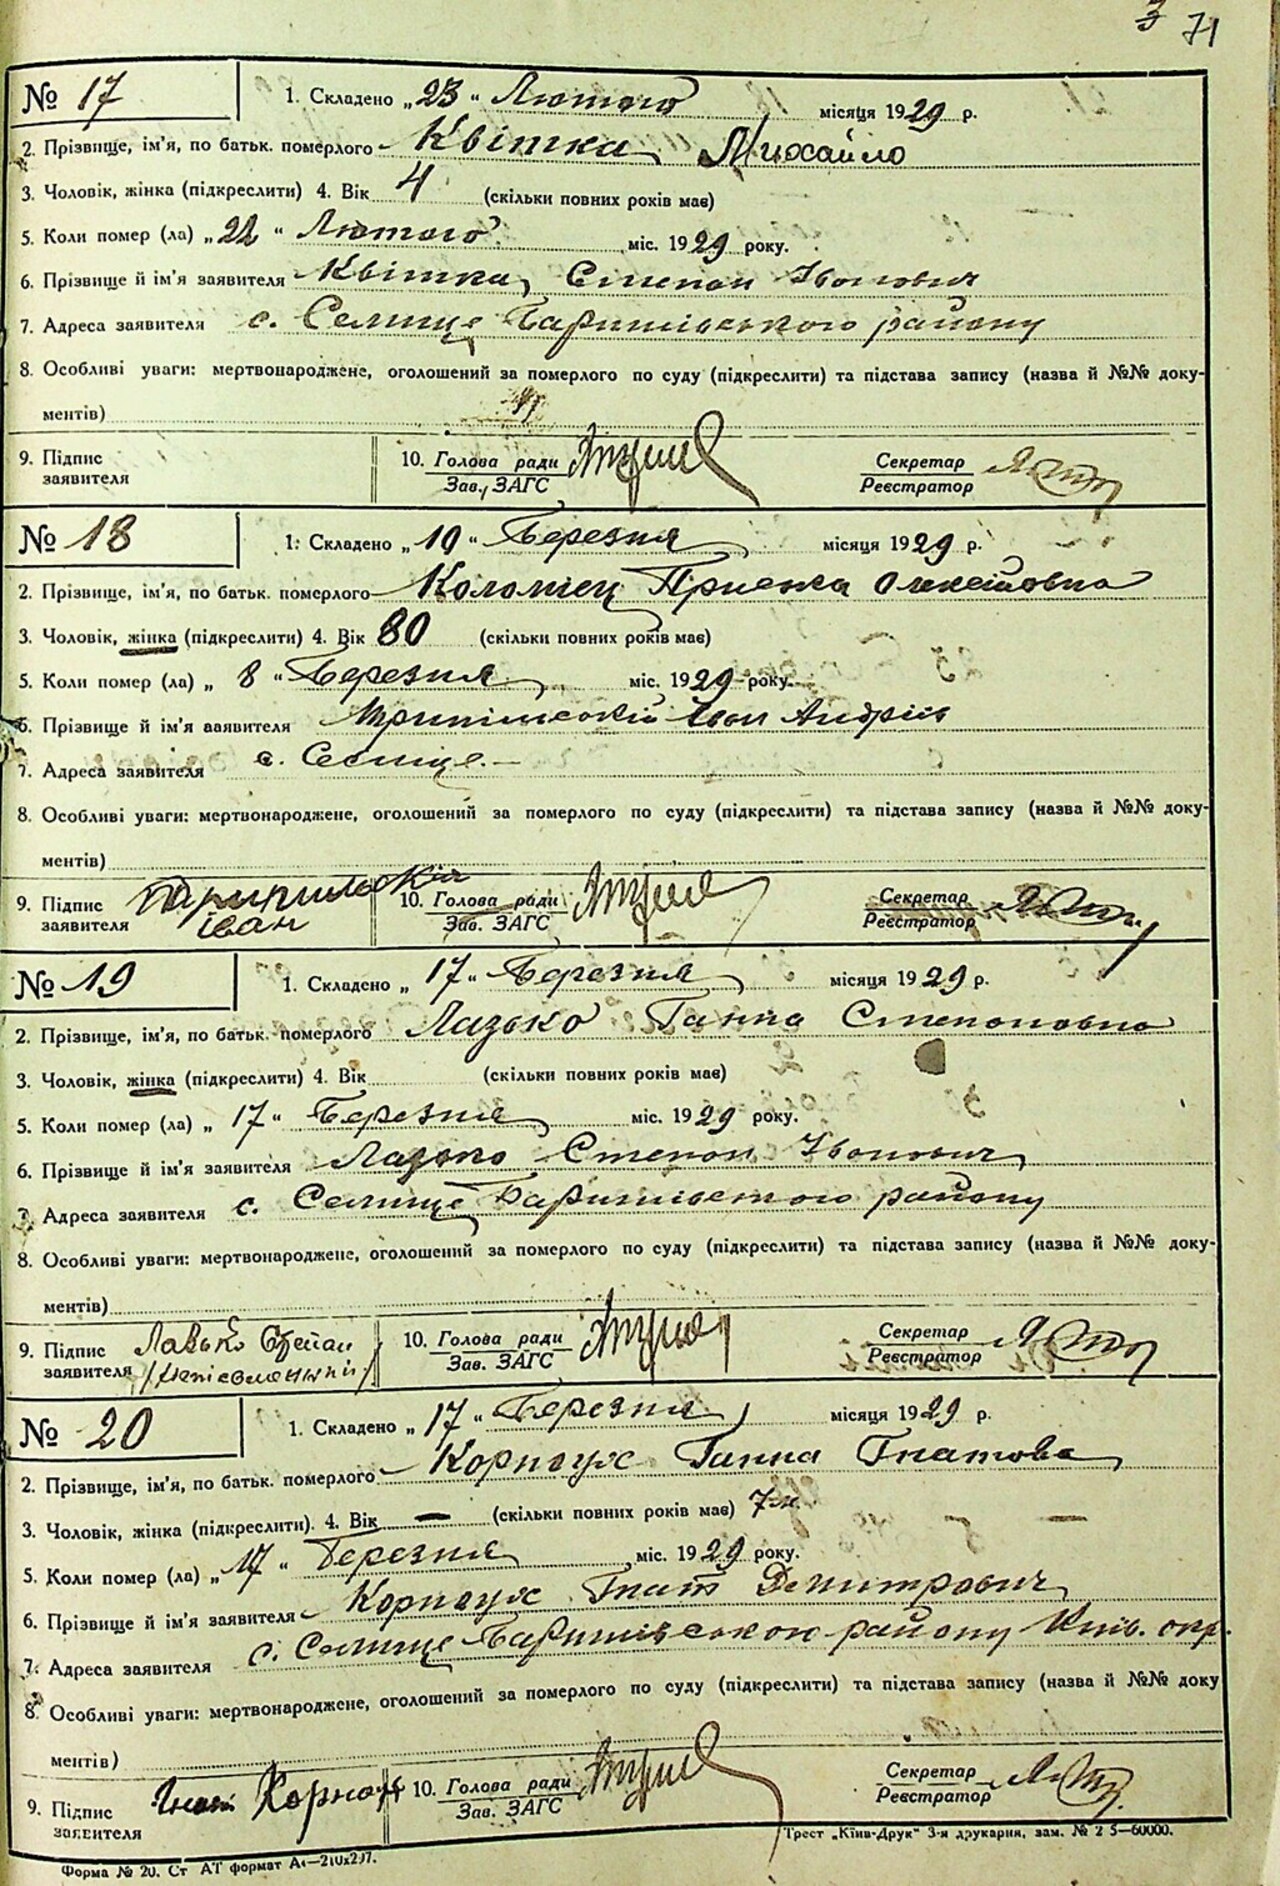 3 71
№ 17 1. Складено „23“ Лютого місяця 1929 р.
2. Прізвище, ім'я, по батьк. померлого Квітка Михайло
3. Чоловік, жінка (підкреслити) 4. Вік 4 (скільки повних років має)
5. Коли помер (ла) „22“ Лютого міс. 1929 року.
6. Прізвище й ім'я заявителя Квітка Степан Іванович
7. Адреса заявителя с. Селище Баришівського району
8. Особливі уваги: мертвонароджене, оголошений за померлого по суду (підкреслити) та підстава запису (назва й №№ доку-
ментів)
9. Підпис 10. Голова ради Секретар
заявителя Зав. ЗАГС Реєстратор
№ 18 1. Складено „10“ Березня місяця 1929 р.
2. Прізвище, ім'я, по батьк. померлого Коломієц
3. Чоловік, жінка (підкреслити) 4. Вік 80 (скільки повних років має)
5. Коли помер (ла) „8“ Березня міс. 1929 року.
6. Прізвище й ім'я заявителя Трипільський Іван Андріїв
7. Адреса заявителя с. Селище.
8. Особливі уваги: мертвонароджене, оголошений за померлого по суду (підкреслити) та підстава запису (назва й №№ доку-
ментів)
9. Підпис 10. Голова ради Секретар
заявителя Іван Зав. ЗАГС Реєстратор
№ 19 1. Складено „17“ Березня місяця 1929 р.
2. Прізвище, ім'я, по батьк. померлого Лазько Ганна Степановна
3. Чоловік, жінка (підкреслити) 4. Вік (скільки повних років має)
5. Коли помер (ла) „17“ Березня міс. 1929 року.
6. Прізвище й ім'я заявителя Лазько Степан Іванович
7. Адреса заявителя с. Селище Баришівского району
8. Особливі уваги: мертвонароджене, оголошений за померлого по суду (підкреслити) та підстава запису (назва й №№ доку-
ментів)
9. Підпис Лазько Степан 10. Голова ради Секретар
заявителя Зав. ЗАГС Реєстратор
№ 20 1. Складено „17“ Березня місяця 1929 р.
2. Прізвище, ім'я, по батьк. померлого Корноух Ганна Гнатова
3. Чоловік, жінка (підкреслити). 4. Вік — (скільки повних років має) 7 м.
5. Коли помер (ла) „17“ Березня міс. 1929 року.
6. Прізвище й ім'я заявителя Корноух Гнат Дмитрович
7. Адреса заявителя с. Селище Баришівського району Київ. окр.
8. Особливі уваги: мертвонароджене, оголошений за померлого по суду (підкреслити) та підстава запису (назва й №№ доку
ментів)
9. Підпис Гнат Корноух 10. Голова ради Секретар
заявителя Зав. ЗАГС Реєстратор
Форма № 20. Ст АТ формат А4—210x297. Трест „Київ-Друк“ 3-я друкарня, зам. № 2 5—60000.